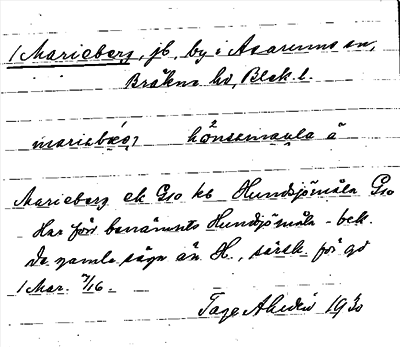 1 Marieberg, jb, by i Asarums sn,
Bräkne hd, Blek. l.
hönsemåla ä
Marieberg ek Gro kb Hundsjömåla Gro
Har förr benämnts Hundsjömåla - bek.
De gamla säga än H., särsk. för gd
1 Mar. 7/16 -
Tage Ahldén 1930